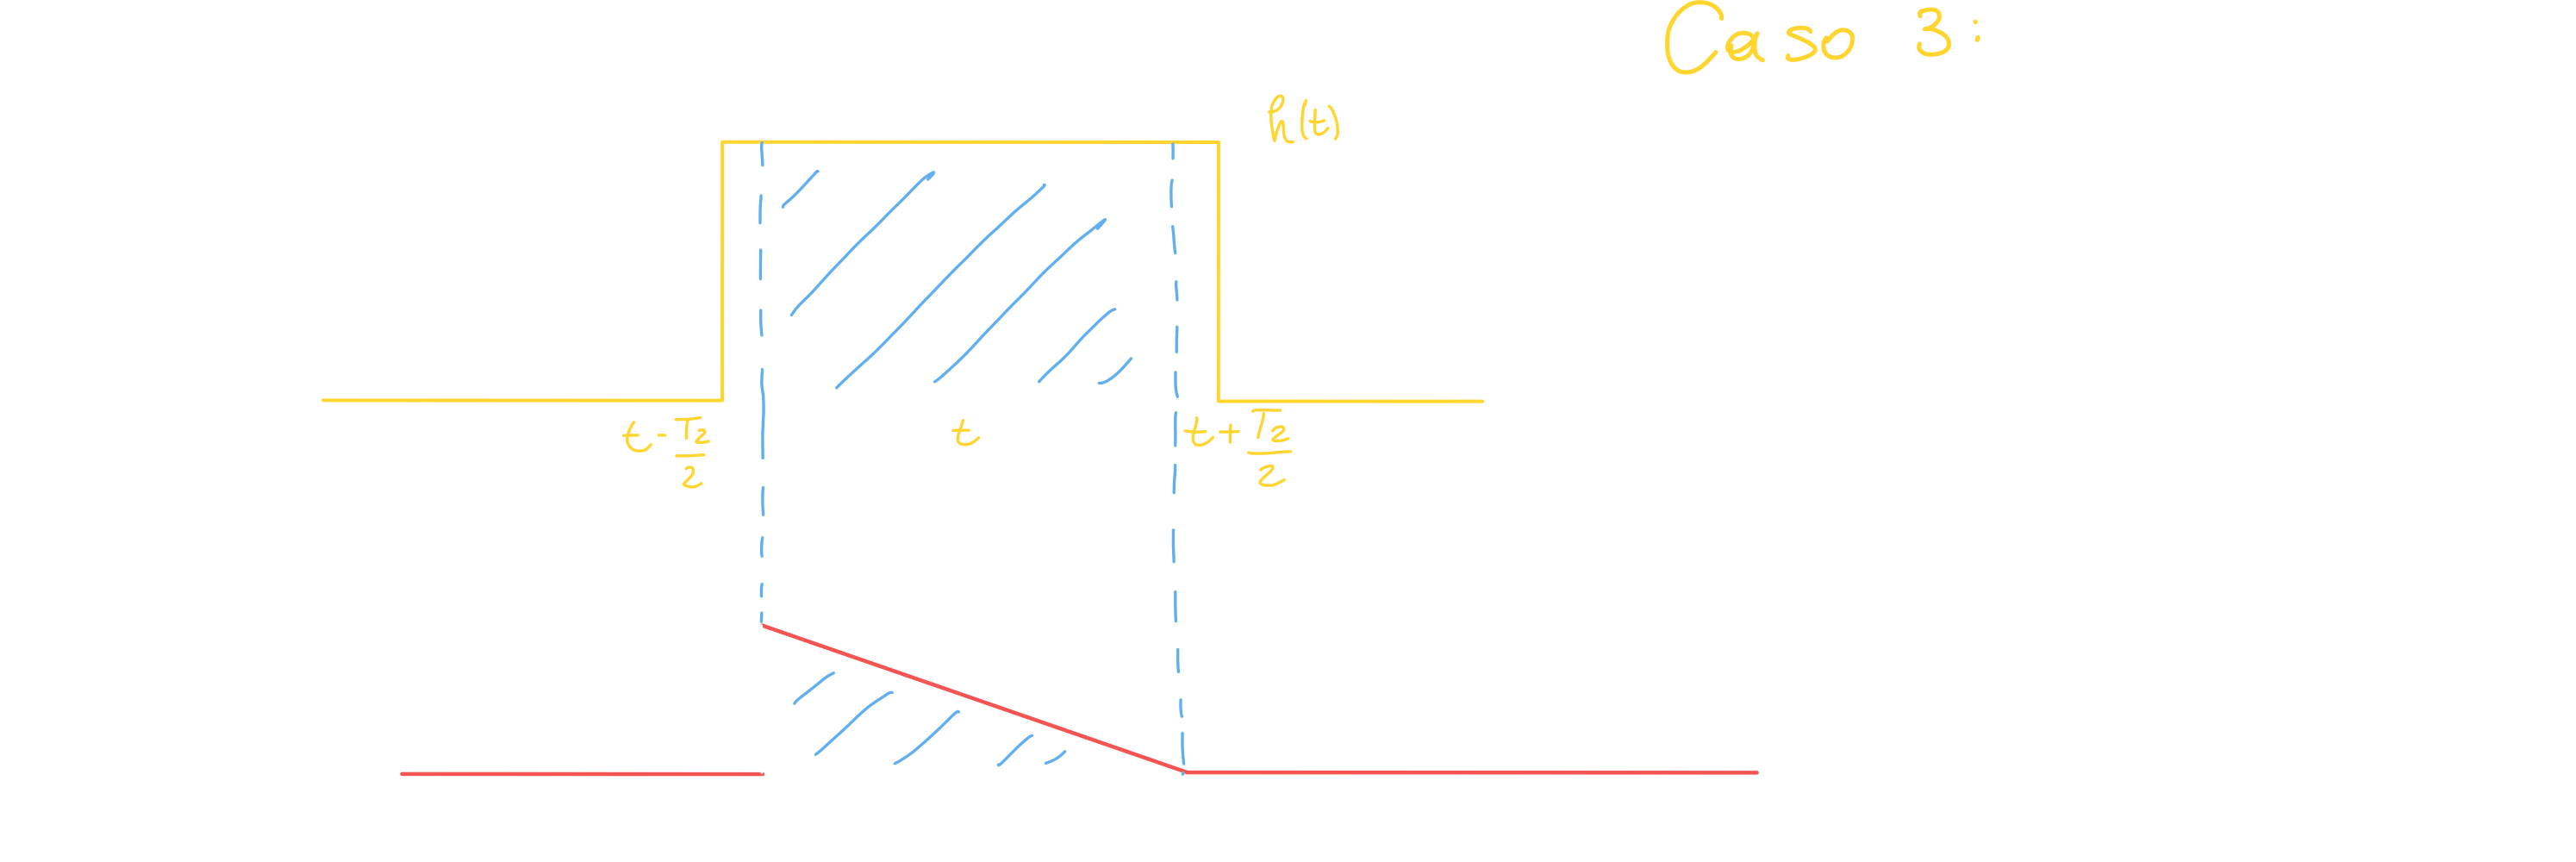 Caso 3:
h(t)
t-T2/2
t
t+T2/2